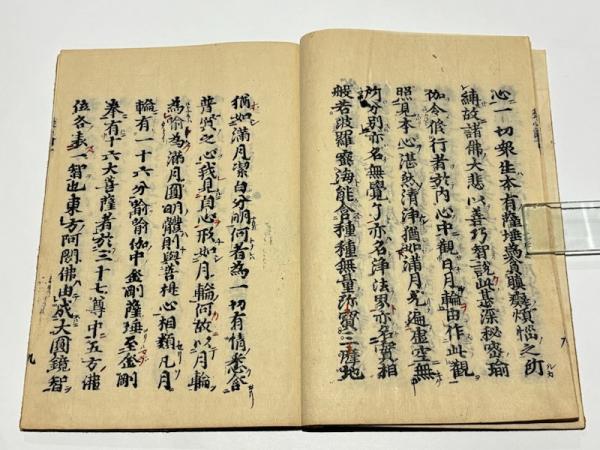 心一切衆生本有薩埵為貪瞋癡煩惱之所
縛故諸佛大悲以善巧智説此甚深秘密瑜
伽令修行者於内心中觀日月輪由作此觀
照見本心湛然清淨猶如滿月光遍虚空無
所分別亦名無覺了亦名淨法界亦名實相
般若波羅蜜海能含種種無量珎寶三摩地
猶如滿月潔白分明何者為一切有情悉含
普賢之心我見自心形如月輪何故以月輪
為喻為滿月圓明體則與菩提心相類凡月
輪有一十六分喻瑜伽中金剛薩埵至金剛
拳有十六大菩薩者於三十七尊中五方佛
位各表一智也東方阿閦佛由成大圓鏡智
九